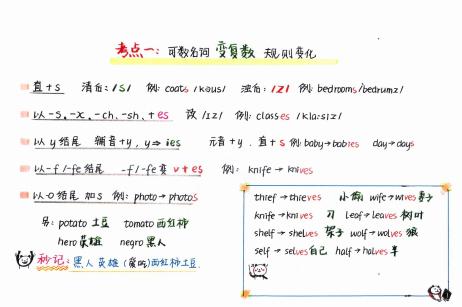 考点一: 可数名词 变复数 规则变化
直+s 清音: /s/ 例: coats /kəus/ 浊音: /z/ 例: bedrooms/bedrumz/
以-s. -x. -ch. -sh. +es 读/ɪz/ 例: classes /kla:sɪz/
以y结尾 辅音+y, y⇒ies 元音+y. 直+s 例: baby→babies day→days
以-f/-fe结尾 -f/-fe变v+es 例: knife→knives
以-o结尾 加s 例: photo→photos
另: potato 土豆 tomato 西红柿
hero 英雄 negro 黑人
秒记: 黑人英雄(爱吃)西红柿土豆.
thief→thieves 小偷 wife→wives 妻子
knife→knives 刀 leaf→leaves 树叶
shelf→shelves 架子 wolf→wolves 狼
self→selves 自己 half→halves 半